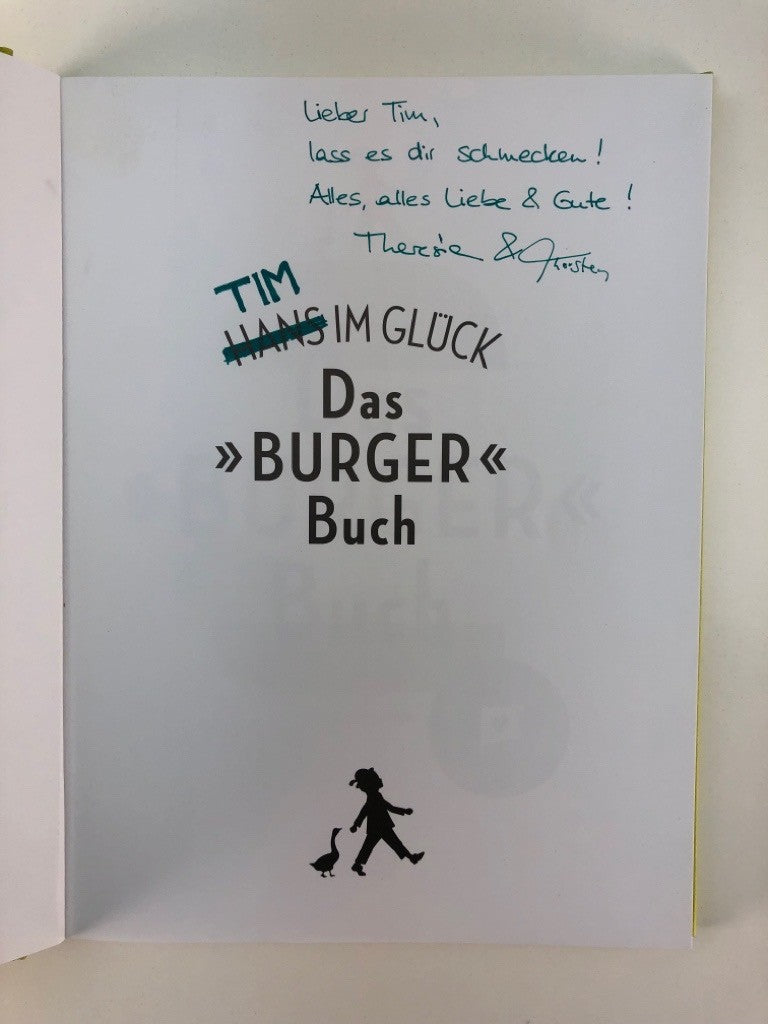 Lieber Tim,
lass es dir schmecken!
Alles, alles Liebe & Gute!
Theresia & Thorsten
TIM
HANS IM GLÜCK
Das
»BURGER«
Buch